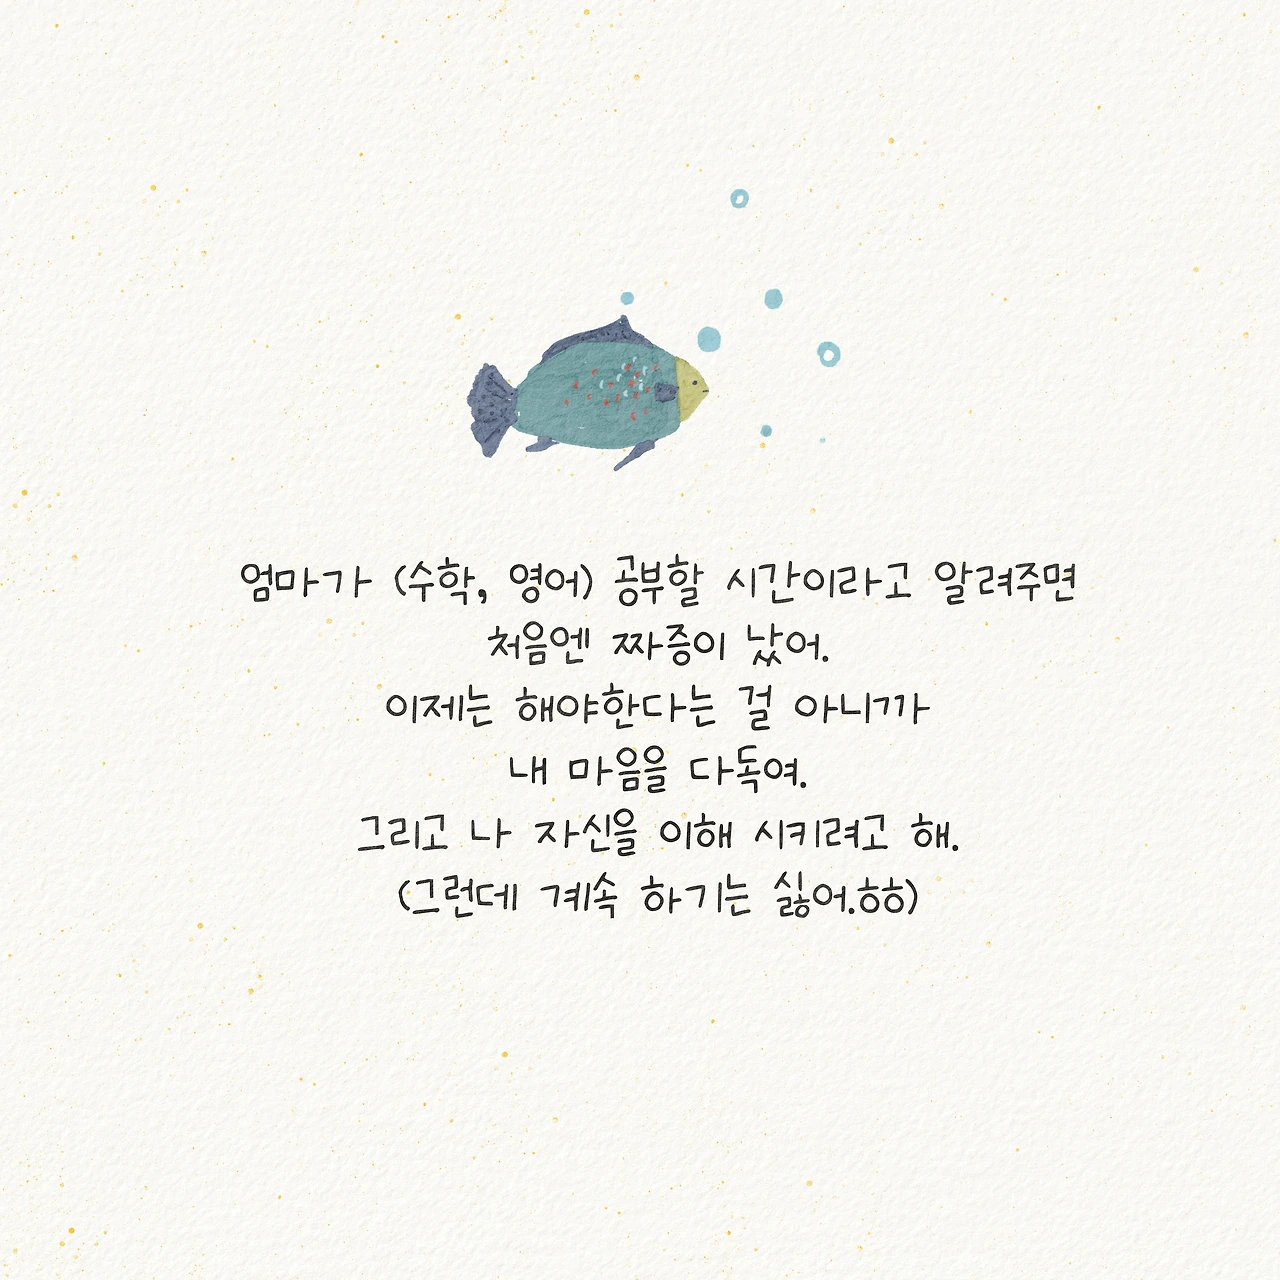 엄마가 (수학, 영어) 공부할 시간이라고 알려주면
처음엔 짜증이 났어.
이제는 해야한다는 걸 아니까
내 마음을 다독여.
그리고 나 자신을 이해 시키려고 해.
(그런데 계속 하기는 싫어.ㅎㅎ)